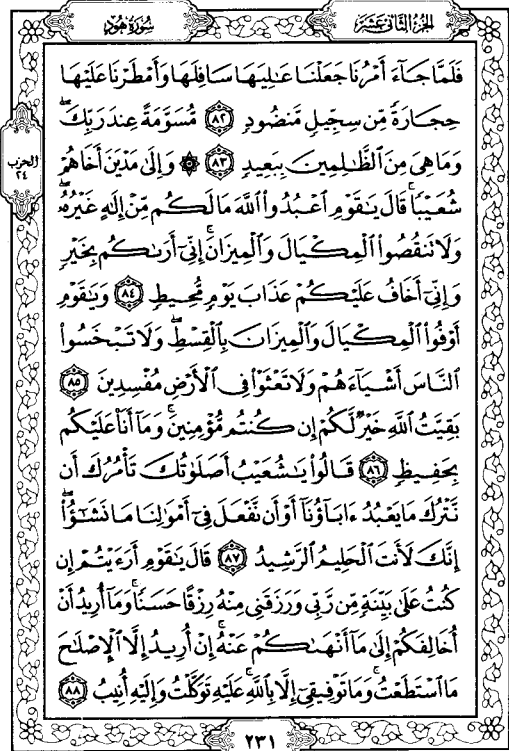 سورة هود
الجزء الثاني عشر
فَلَمَّا جَآءَ أَمْرُنَا جَعَلْنَا عَـٰلِيَهَا سَافِلَهَا وَأَمْطَرْنَا عَلَيْهَا
حِجَارَةً مِّن سِجِّيلٍ مَّنضُودٍ ٨٢ مُّسَوَّمَةً عِندَ رَبِّكَۖ
وَمَا هِىَ مِنَ ٱلظَّـٰلِمِينَ بِبَعِيدٍ ٨٣ ۞ وَإِلَىٰ مَدْيَنَ أَخَاهُمْ
الحزب
٢٤
شُعَيْبًاۚ قَالَ يَـٰقَوْمِ ٱعْبُدُوا۟ ٱللَّهَ مَا لَكُم مِّنْ إِلَـٰهٍ غَيْرُهُۥۖ
وَلَا تَنقُصُوا۟ ٱلْمِكْيَالَ وَٱلْمِيزَانَۚ إِنِّىٓ أَرَىٰكُم بِخَيْرٍ
وَإِنِّىٓ أَخَافُ عَلَيْكُمْ عَذَابَ يَوْمٍ مُّحِيطٍ ٨٤ وَيَـٰقَوْمِ
أَوْفُوا۟ ٱلْمِكْيَالَ وَٱلْمِيزَانَ بِٱلْقِسْطِۖ وَلَا تَبْخَسُوا۟
ٱلنَّاسَ أَشْيَآءَهُمْ وَلَا تَعْثَوْا۟ فِى ٱلْأَرْضِ مُفْسِدِينَ ٨٥
بَقِيَّتُ ٱللَّهِ خَيْرٌ لَّكُمْ إِن كُنتُم مُّؤْمِنِينَۚ وَمَآ أَنَا۠ عَلَيْكُم
بِحَفِيظٍ ٨٦ قَالُوا۟ يَـٰشُعَيْبُ أَصَلَوٰتُكَ تَأْمُرُكَ أَن
نَّتْرُكَ مَا يَعْبُدُ ءَابَآؤُنَآ أَوْ أَن نَّفْعَلَ فِىٓ أَمْوَٰلِنَا مَا نَشَـٰٓؤُا۟ۖ
إِنَّكَ لَأَنتَ ٱلْحَلِيمُ ٱلرَّشِيدُ ٨٧ قَالَ يَـٰقَوْمِ أَرَءَيْتُمْ إِن
كُنتُ عَلَىٰ بَيِّنَةٍ مِّن رَّبِّى وَرَزَقَنِى مِنْهُ رِزْقًا حَسَنًاۚ وَمَآ أُرِيدُ أَنْ
أُخَالِفَكُمْ إِلَىٰ مَآ أَنْهَىٰكُمْ عَنْهُۚ إِنْ أُرِيدُ إِلَّا ٱلْإِصْلَـٰحَ
مَا ٱسْتَطَعْتُۚ وَمَا تَوْفِيقِىٓ إِلَّا بِٱللَّهِۚ عَلَيْهِ تَوَكَّلْتُ وَإِلَيْهِ أُنِيبُ ٨٨
٢٣١